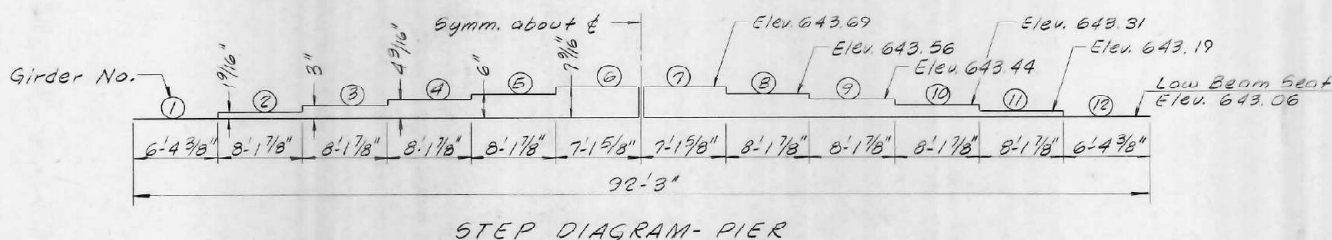 Symm. about ℄
Elev. 643.69
Elev. 643.56
Elev. 643.44
Elev. 643.31
Elev. 643.19
Low Beam Seat
Elev. 643.06
Girder No.
1 2 3 4 5 6 7 8 9 10 11 12
1 9/16" 3" 4 9/16" 6" 7 9/16"
6'-4 3/8" 8'-1 7/8" 8'-1 7/8" 8'-1 7/8" 8'-1 7/8" 7'-1 5/8" 7'-1 5/8" 8'-1 7/8" 8'-1 7/8" 8'-1 7/8" 8'-1 7/8" 6'-4 3/8"
92'-3"
STEP DIAGRAM- PIER